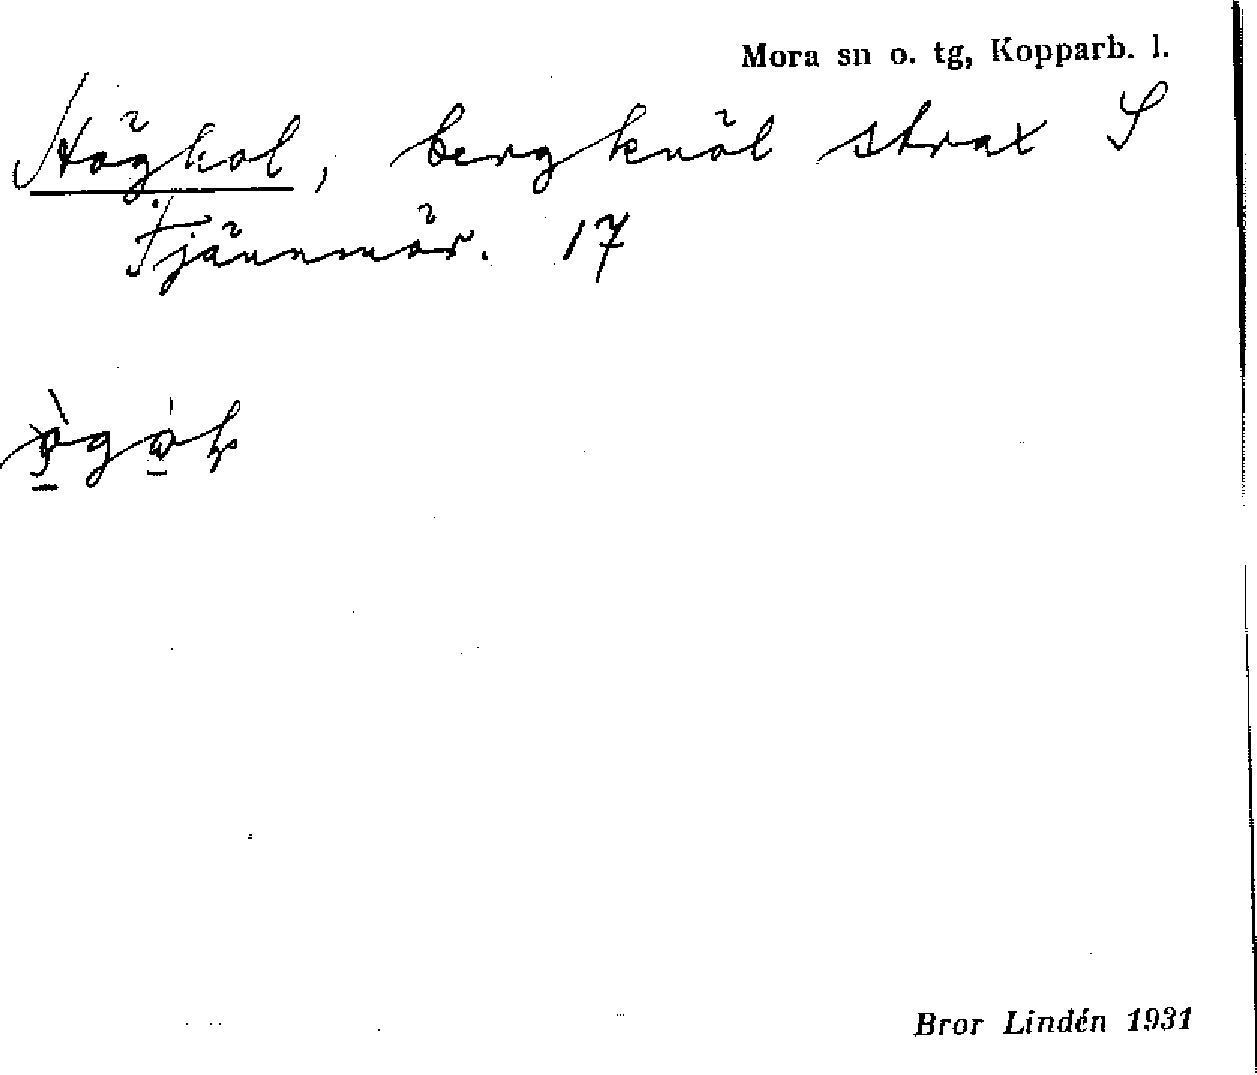 Mora sn o. tg, Kopparb. l.
Högkol, bergknöl strax S
Fjännmör. 17
Bror Lindén 1931